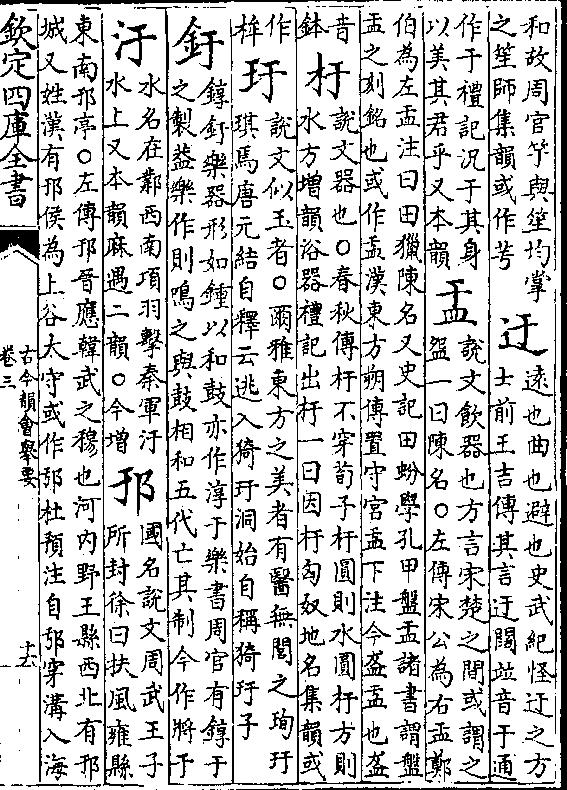 和故周官竽與笙均掌
之笙師集韻或作芌
迂
遠也曲也避也史武紀怪迂之方
士前王吉傳其言迂闊竝音于通
作于禮記況于其身
以美其君乎又本韻
盂
說文飲器也方言宋楚之間或謂之
盌一曰陳名○左傳宋公為右盂鄭
伯為左盂注曰田獵陳名又史記田蚡學孔甲盤盂諸書謂盤
盂之刻銘也或作盓漢東方朔傳置守宮盓下注今盋盓也盋
音
鉢
杅
說文器也○春秋傳杅不穿荀子杅圓則水圓杅方則
水方增韻浴器禮記出杅一曰因杅匈奴地名集韻或
作
桙
玗
說文似玉者○爾雅東方之美者有醫無閭之珣玗
琪焉唐元結自釋云逃入猗玗洞始自稱猗玗子
釪
錞釪樂器形如鍾以和鼓亦作淳于樂書周官有錞于
之製葢樂作則鳴之與鼓相和五代亡其制今作將于
汙
水名在鄴西南項羽擊秦軍汙
水上又本韻麻遇二韻○今增
邘
國名說文周武王子
所封徐曰扶風雍縣
東南邘亭○左傳邘晉應韓武之穆也河内野王縣西北有邘
城又姓漢有邘侯為上谷太守或作杜預注自穿溝入海
欽定四庫全書
古今韻會舉要
卷三
十六